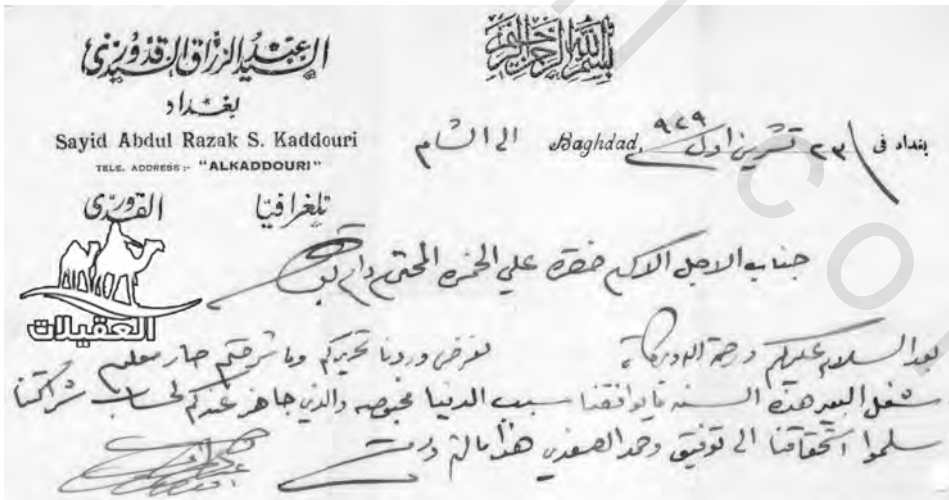 بسم الله الرحمن الرحيم
السيد عبد الرزاق السيد قدوري
بغداد
Sayid Abdul Razak S. Kaddouri
TELE. ADDRESS:- "ALKADDOURI"
تلغرافيا القدوري
العقيلات
بغداد في ٢٣ تشرين اول ٩٢٩ Baghdad,
الى الشام
جناب الاجل الاكرم حضرة علي المحترم دام
بعد السلام عليكم ورحمة الله وبركاته نعرض وردنا تحريركم وما شرحتم صار معلوم
شغل البعير هذه السنه ما يوافقنا سبب الدنيا والذي جاهز عندكم لحساب شراكتنا
سلموا استحقاقنا الى توفيق وحمد الصفدي هذا ما لزم ودمتم